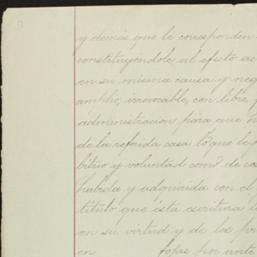 y demás que le corresponden
constituyéndole al efecto
en su misma causa y neg
amplio, irrevocable, con libre,
administracion para que
de la referida casa lo que le p
bitrio y voluntad como de co
habida y adquirida con el
título que ésta escritura
en su virtud y de los
en por ante